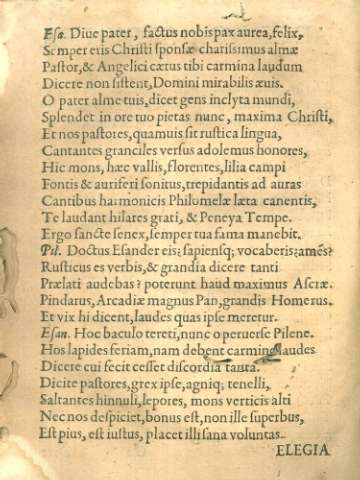 Esa. Diue pater, factus nobis pax aurea, felix,
Semper eris Christi sponsæ charissimus almæ
Pastor, & Angelici cætus tibi carmina laudum
Dicere non sistent, Domini mirabilis æuis.
O pater alme tuis, dicet gens inclyta mundi,
Splendet in ore tuo pietas nunc, maxima Christi,
Et nos pastores, quamuis sit rustica lingua,
Cantantes granciles versus adolemus honores,
Hic mons, hæc vallis, florentes, lilia campi
Fontis & auriferi sonitus, trepidantis ad auras
Cantibus harmonicis Philomelæ læta canentis,
Te laudant hilares grati, & Peneya Tempe.
Ergo sancte senex, semper tua fama manebit.
Pil. Doctus Esander eis? sapiensq; vocaberis? amēs?
Rusticus es verbis, & grandia dicere tanti
Prælati audebas? poterunt haud maximus Ascræ.
Pindarus, Arcadiæ magnus Pan, grandis Homerus.
Et vix hi dicent, laudes quas ipse meretur.
Esan. Hoc baculo tereti, nunc o peruerse Pilene.
Hos lapides feriam, nam debent carmine laudes
Dicere cui fecit cesset discordia tanta.
Dicite pastores, grex ipse, agniq; tenelli,
Saltantes hinnuli, lepores, mons verticis alti
Nec nos despiciet, bonus est, non ille superbus,
Est pius, est iustus, placet illi sana voluntas.
ELEGIA